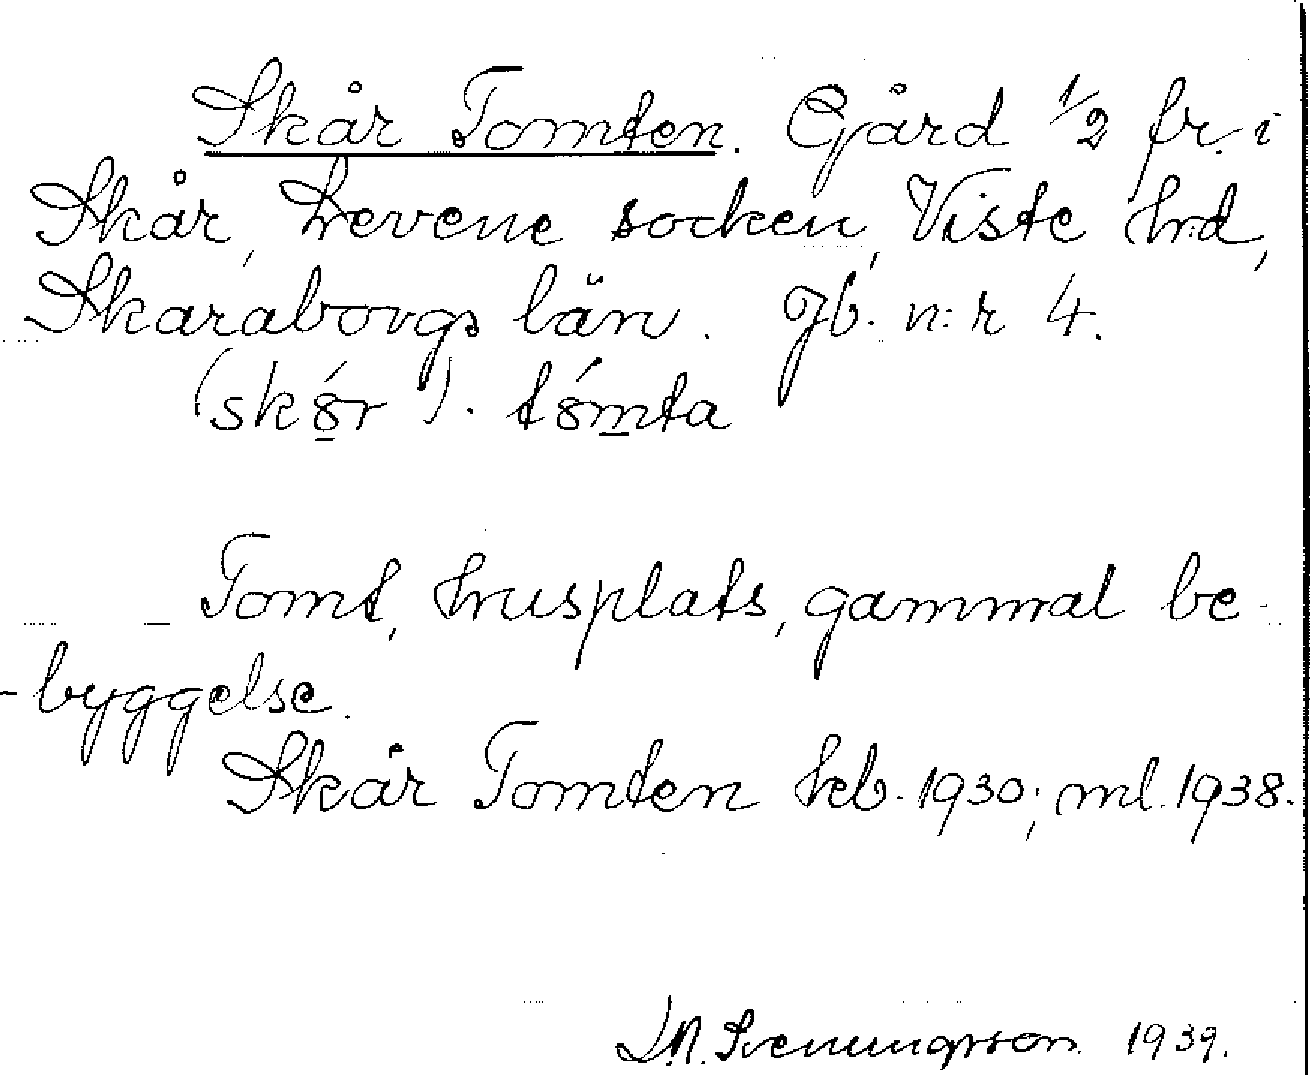 Skår Tomten. Gård 1/2 fr. i
Skår, Levene socken, Viste hrd,
Skaraborgs län. Jb. n:r 4.
(skór). tómta
Tomt, husplats, gammal be-
-byggelse.
Skår Tomten keb. 1930; ml. 1938.
1939.